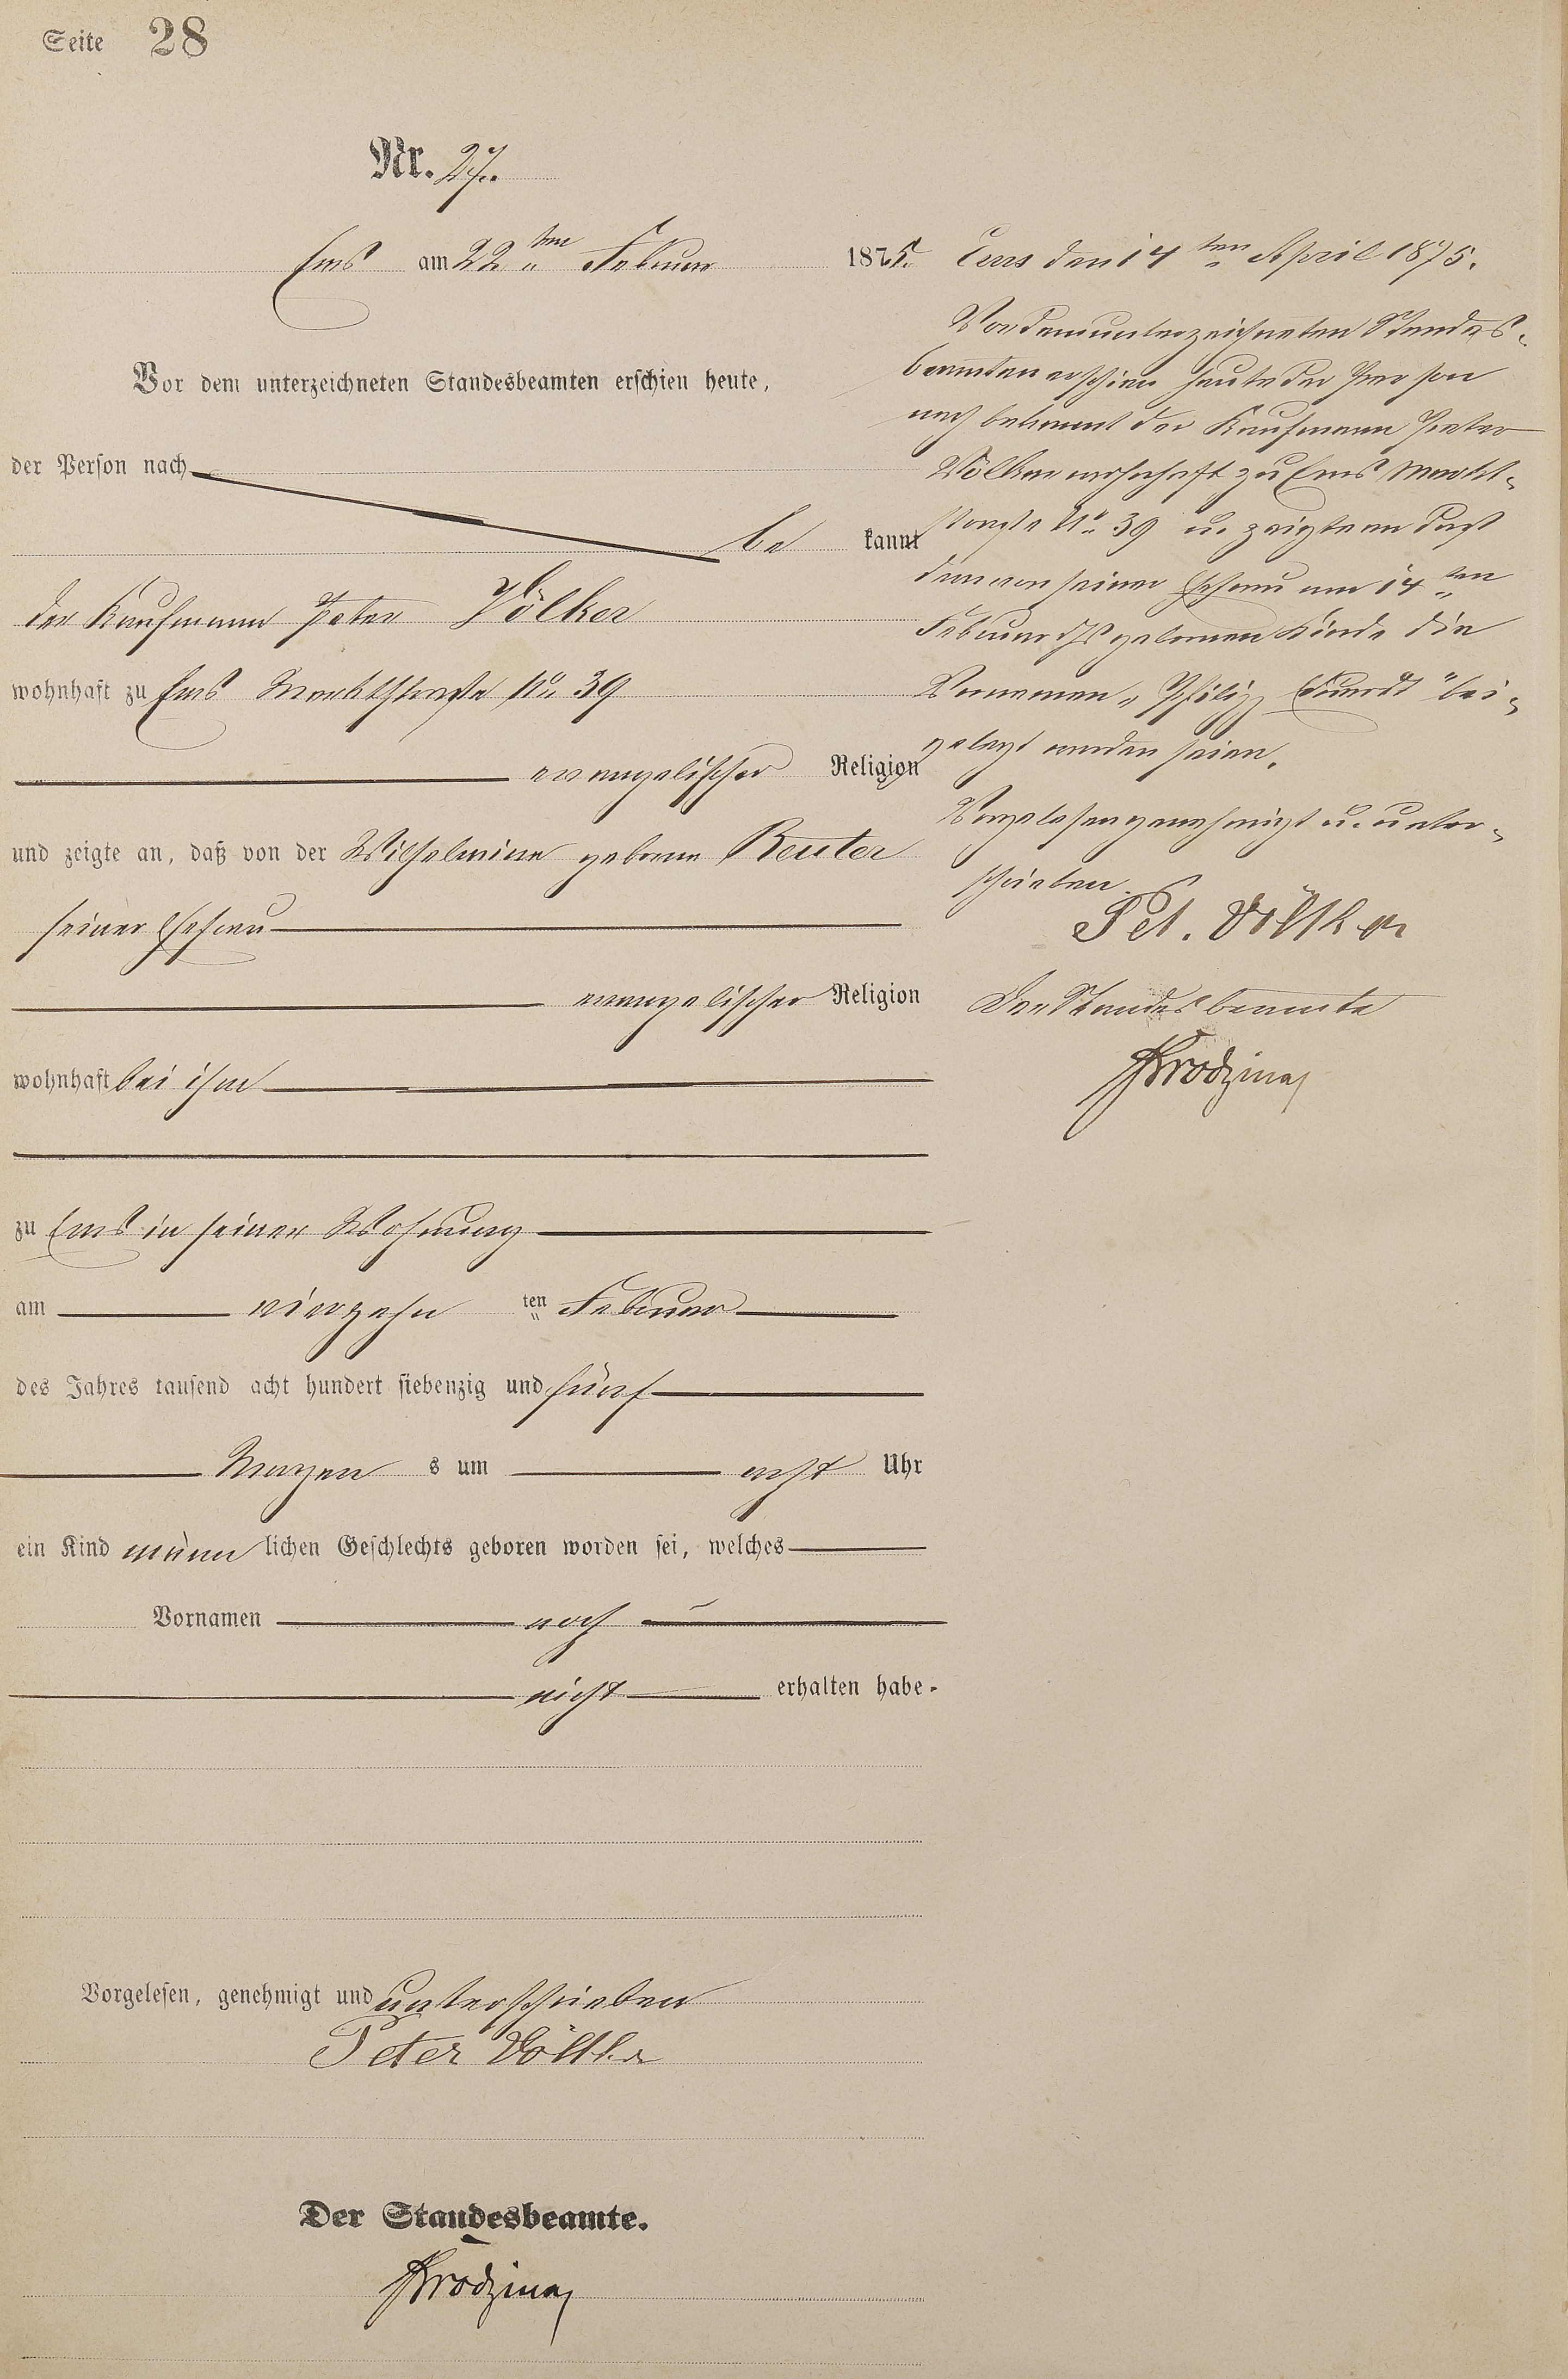 Seite 28
Nr. 27.
Ems am 22ten Februar 1875.
Vor dem unterzeichneten Standesbeamten erschien heute,
der Person nach
be kannt
der Kaufmann Peter Völker
wohnhaft zu Ems Marktstraße No 39
evangelischer Religion
und zeigte an, daß von der Wilhelmine geborne Reuter
seiner Ehefrau
evangelischer Religion
wohnhaft bei ihm
zu Ems in seiner Wohnung
am vierzehn ten Februar
des Jahres tausend acht hundert siebenzig und fünf
Morgen s um acht Uhr
ein Kind männ lichen Geschlechts geboren worden sei, welches
Vornamen noch
nicht erhalten habe.
Vorgelesen, genehmigt und unterschrieben
Peter Völker
Der Standesbeamte.
Ems den 14ten April 1875.
Vor dem unterzeichneten Standes-
beamten erschien heute der Person
nach bekannt der Kaufmann Peter
Völker wohnhaft zu Ems Markt-
straße No 39 u. zeigte an daß
dem von seiner Ehefrau am 14ten
Februar ds geborenen Kinde die
Vornamen „Philipp Eduardt" bei-
gelegt worden seien.
Vorgelesen genehmigt u. unter-
schrieben
Pet. Völker
Der Standesbeamte